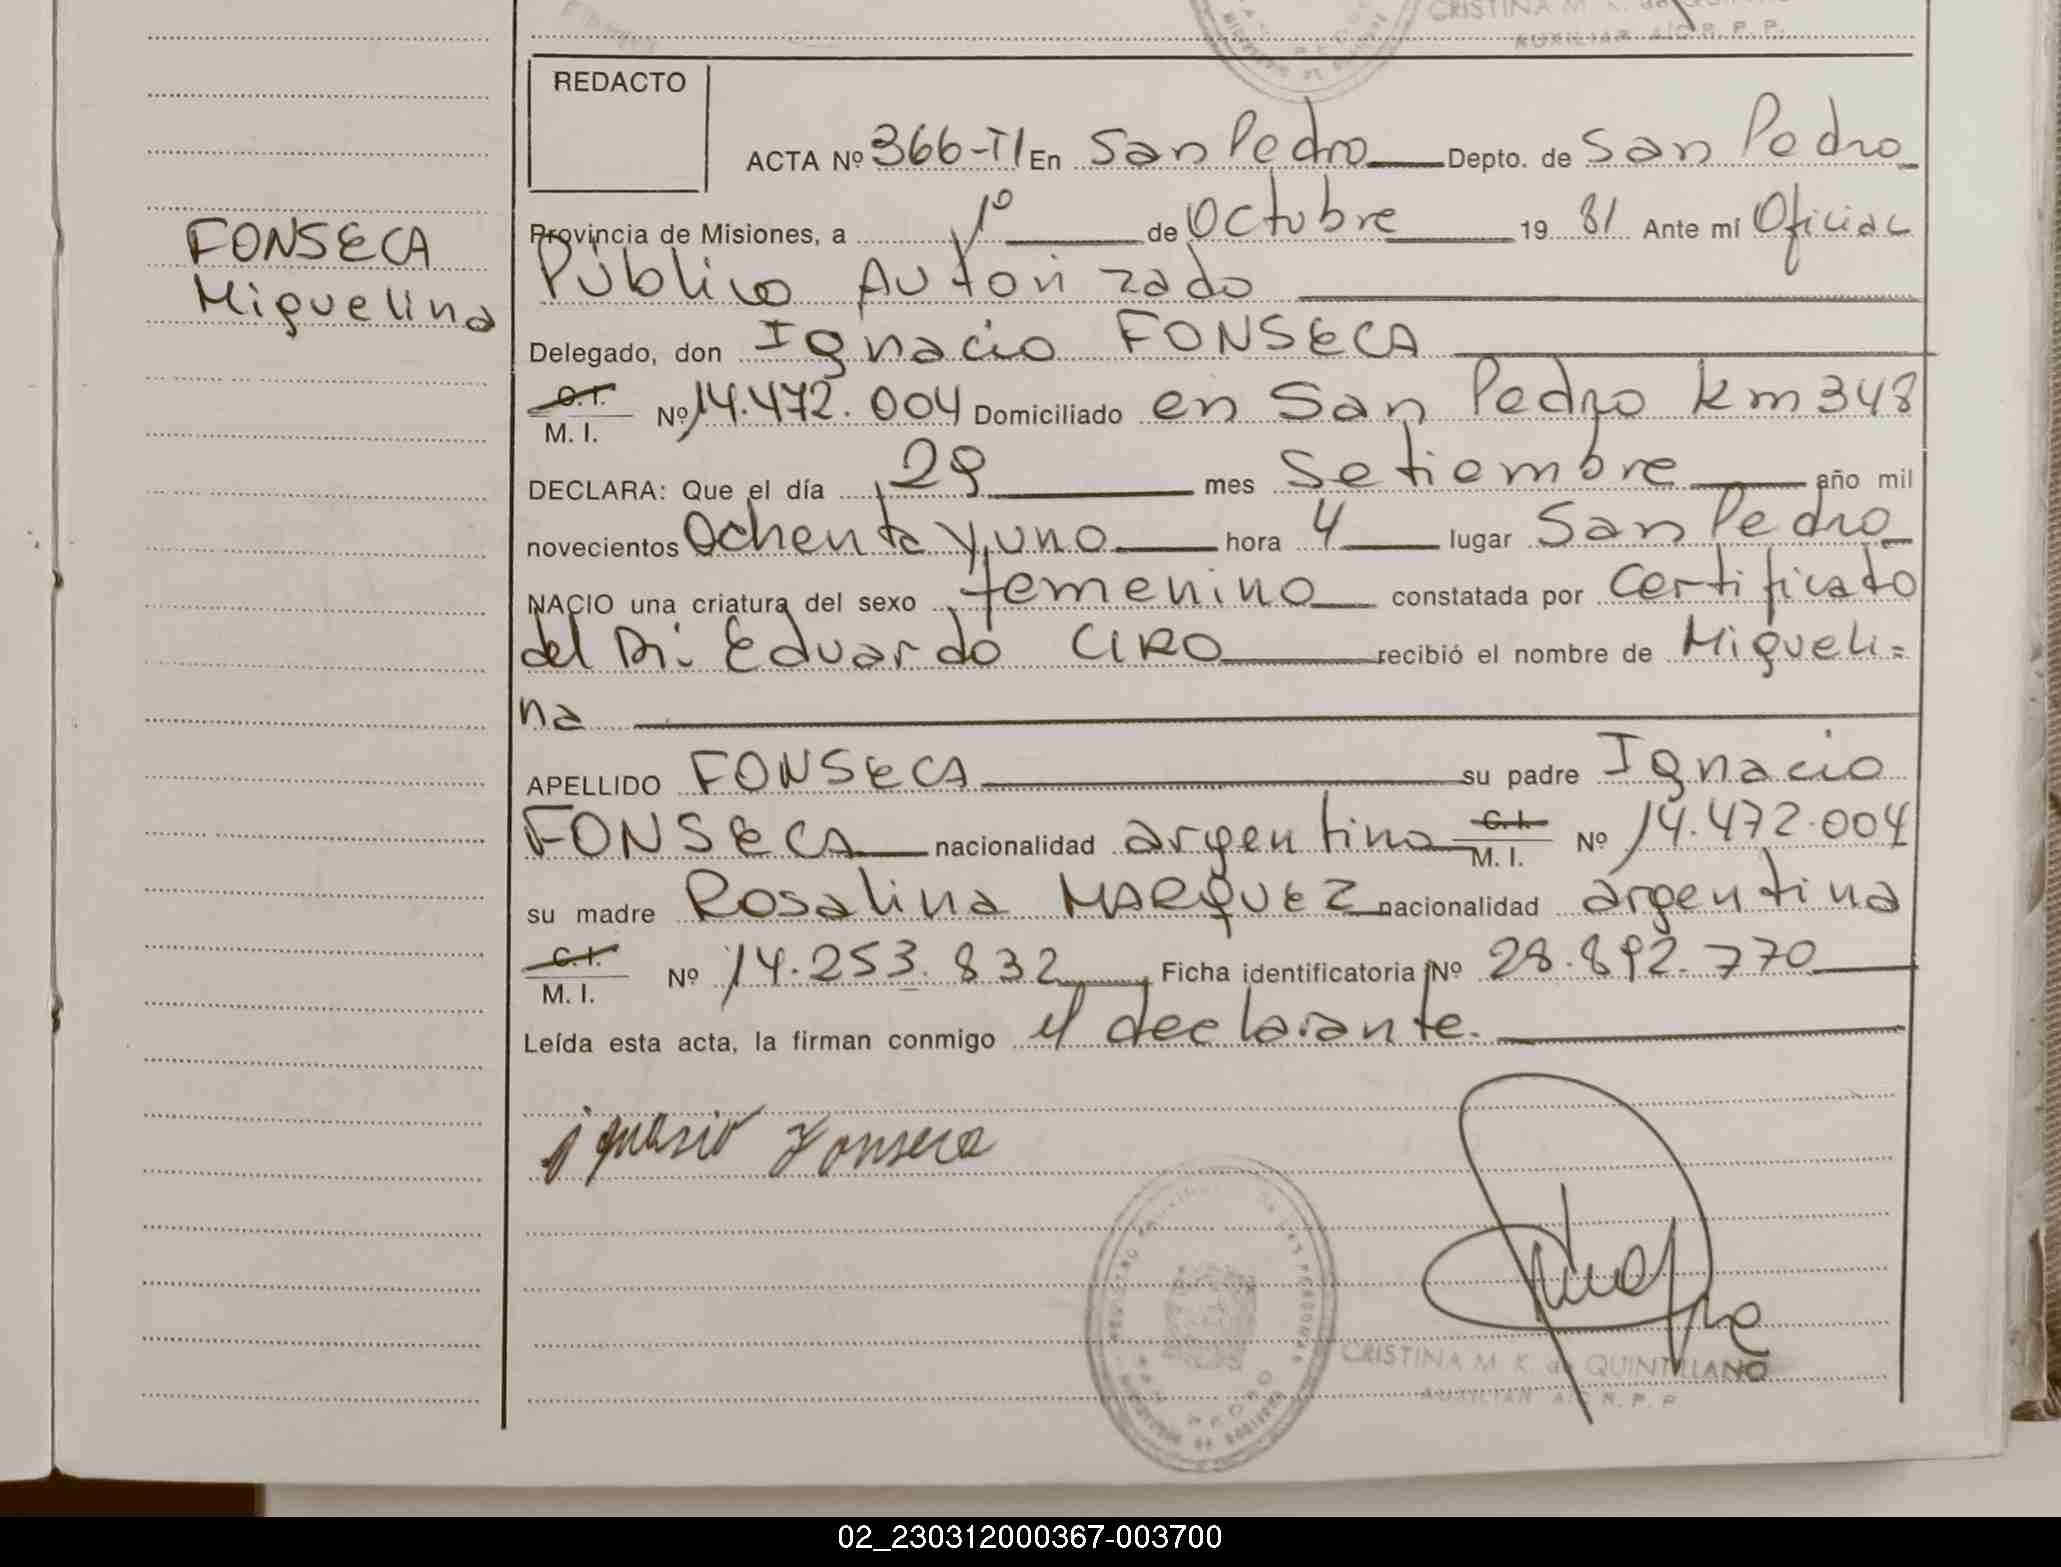 CRISTINA M. K. de
AUXILIAR A/C R. P. P.
REDACTO
ACTA Nº 366-TI En San Pedro Depto. de San Pedro
Provincia de Misiones, a 1º de Octubre 19 81 Ante mí Oficial
Público Autorizado
Delegado, don Ignacio FONSECA
C.I. M. I. Nº 14.472.004 Domiciliado en San Pedro km 348
DECLARA: Que el día 29 mes Setiembre año mil
novecientos Ochenta y uno hora 4 lugar San Pedro
NACIO una criatura del sexo femenino constatada por certificato
del Dr. Eduardo CIRO recibió el nombre de Migueli=
na
APELLIDO FONSECA su padre Ignacio
FONSECA nacionalidad argentina C.I. M. I. Nº 14.472.004
su madre Rosalina MARQUEZ nacionalidad argentina
C.I. M. I. Nº 14.253.832 Ficha identificatoria Nº 28.892.770
Leída esta acta, la firman conmigo el declarante.
FONSECA
Miguelina
ignasio Fonseca
REGISTRO DE LAS PERSONAS
SAN PEDRO
CRISTINA M. K. de QUINTILLANO
AUXILIAR A/C R. P. P.
02_230312000367-003700